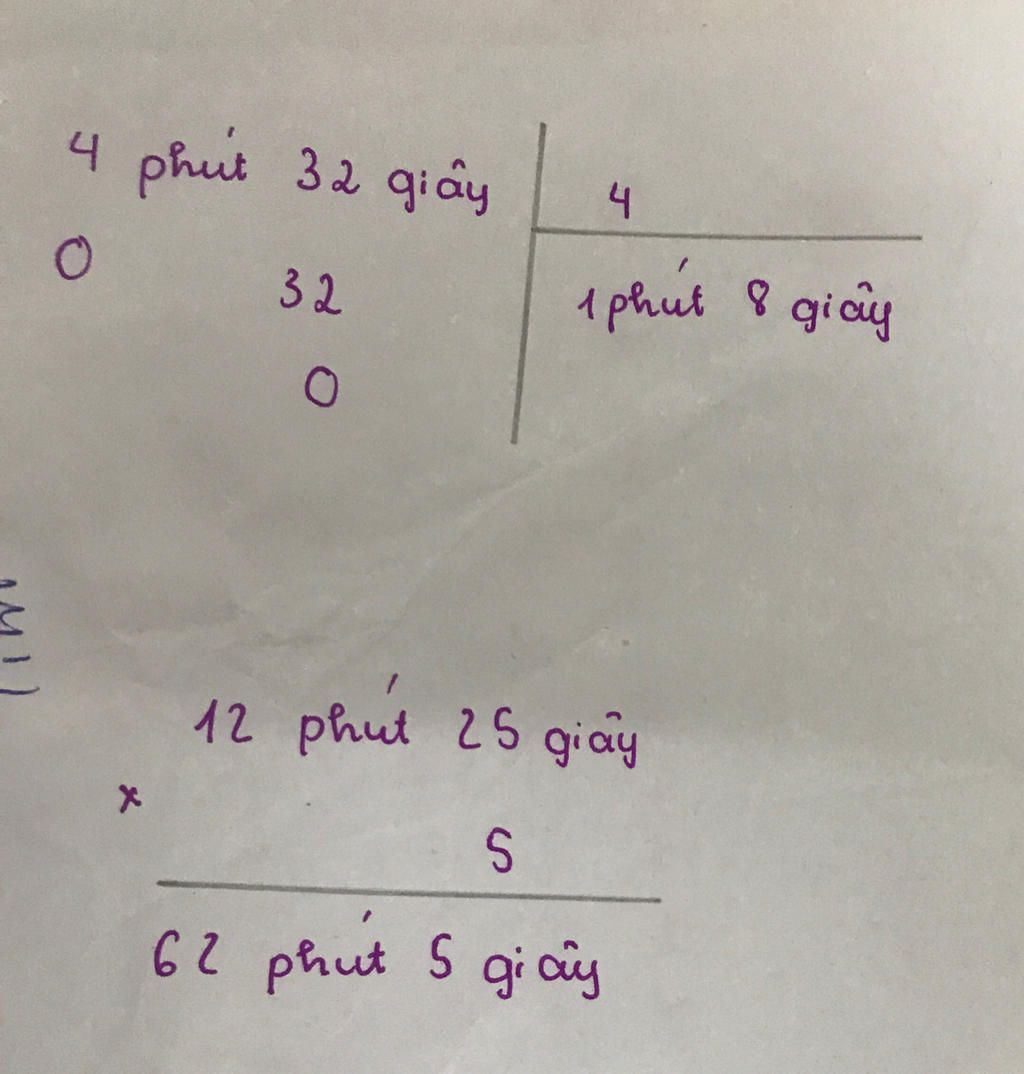 4 phút 32 giây 4
0 32 1 phút 8 giây
0
12 phút 25 giây
x
5
62 phút 5 giây